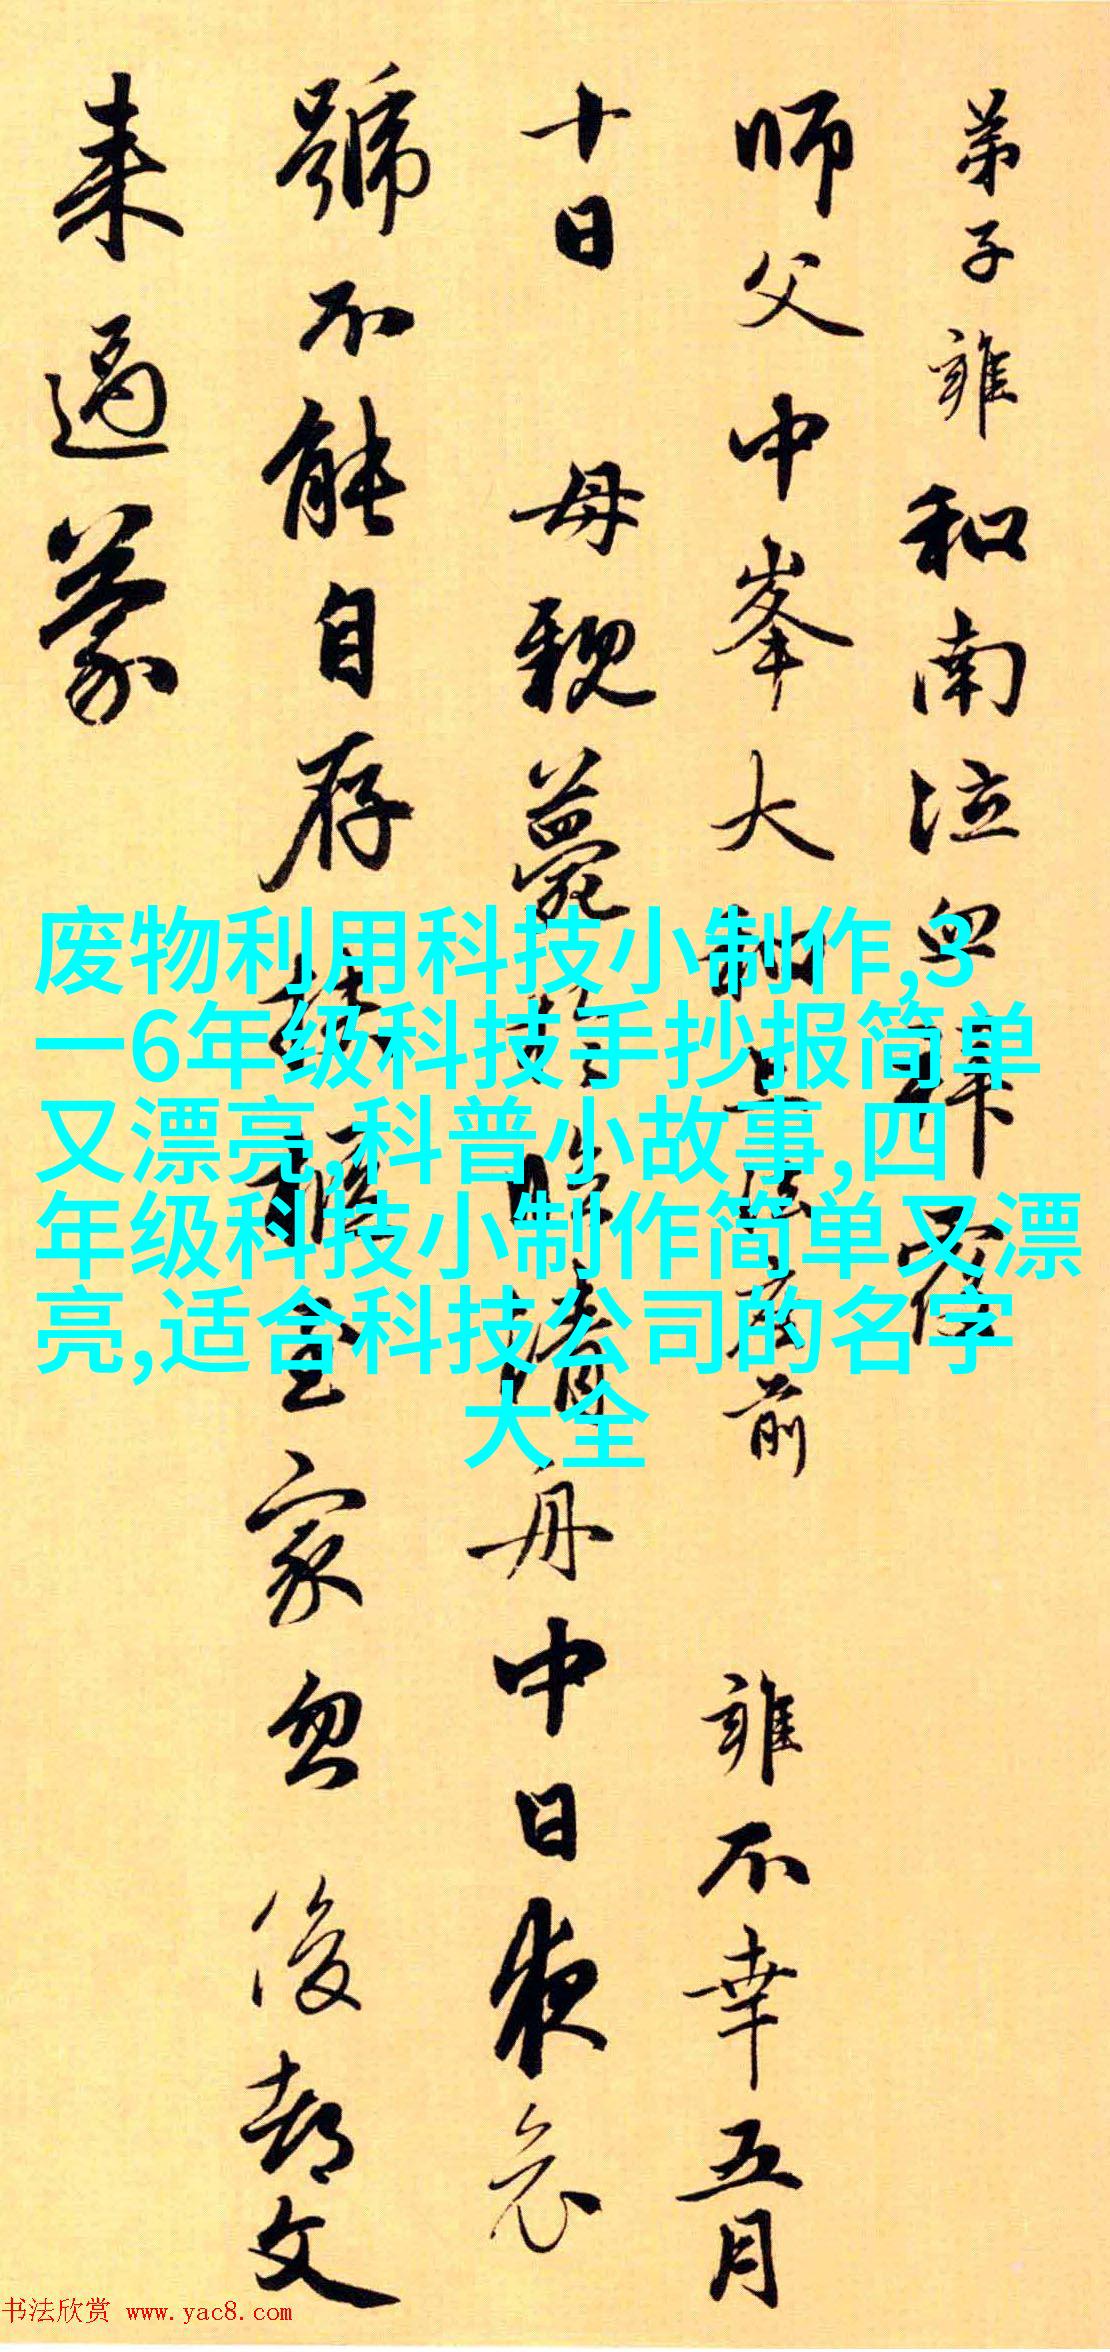 弟子雍和南泣血拜覆
師父中峯大和上法座前
雍不幸五月
十日
母親薨於臨清舟中日夜哀
號不能自存扶柩至家忽
後都文
来過蒙
废物利用科技小制作,3
一6年级科技手抄报简单
又漂亮,科普小故事,四
年级科技小制作简单又漂
亮,适合科技公司的名字
大全
书法欣赏 www.yac8.com